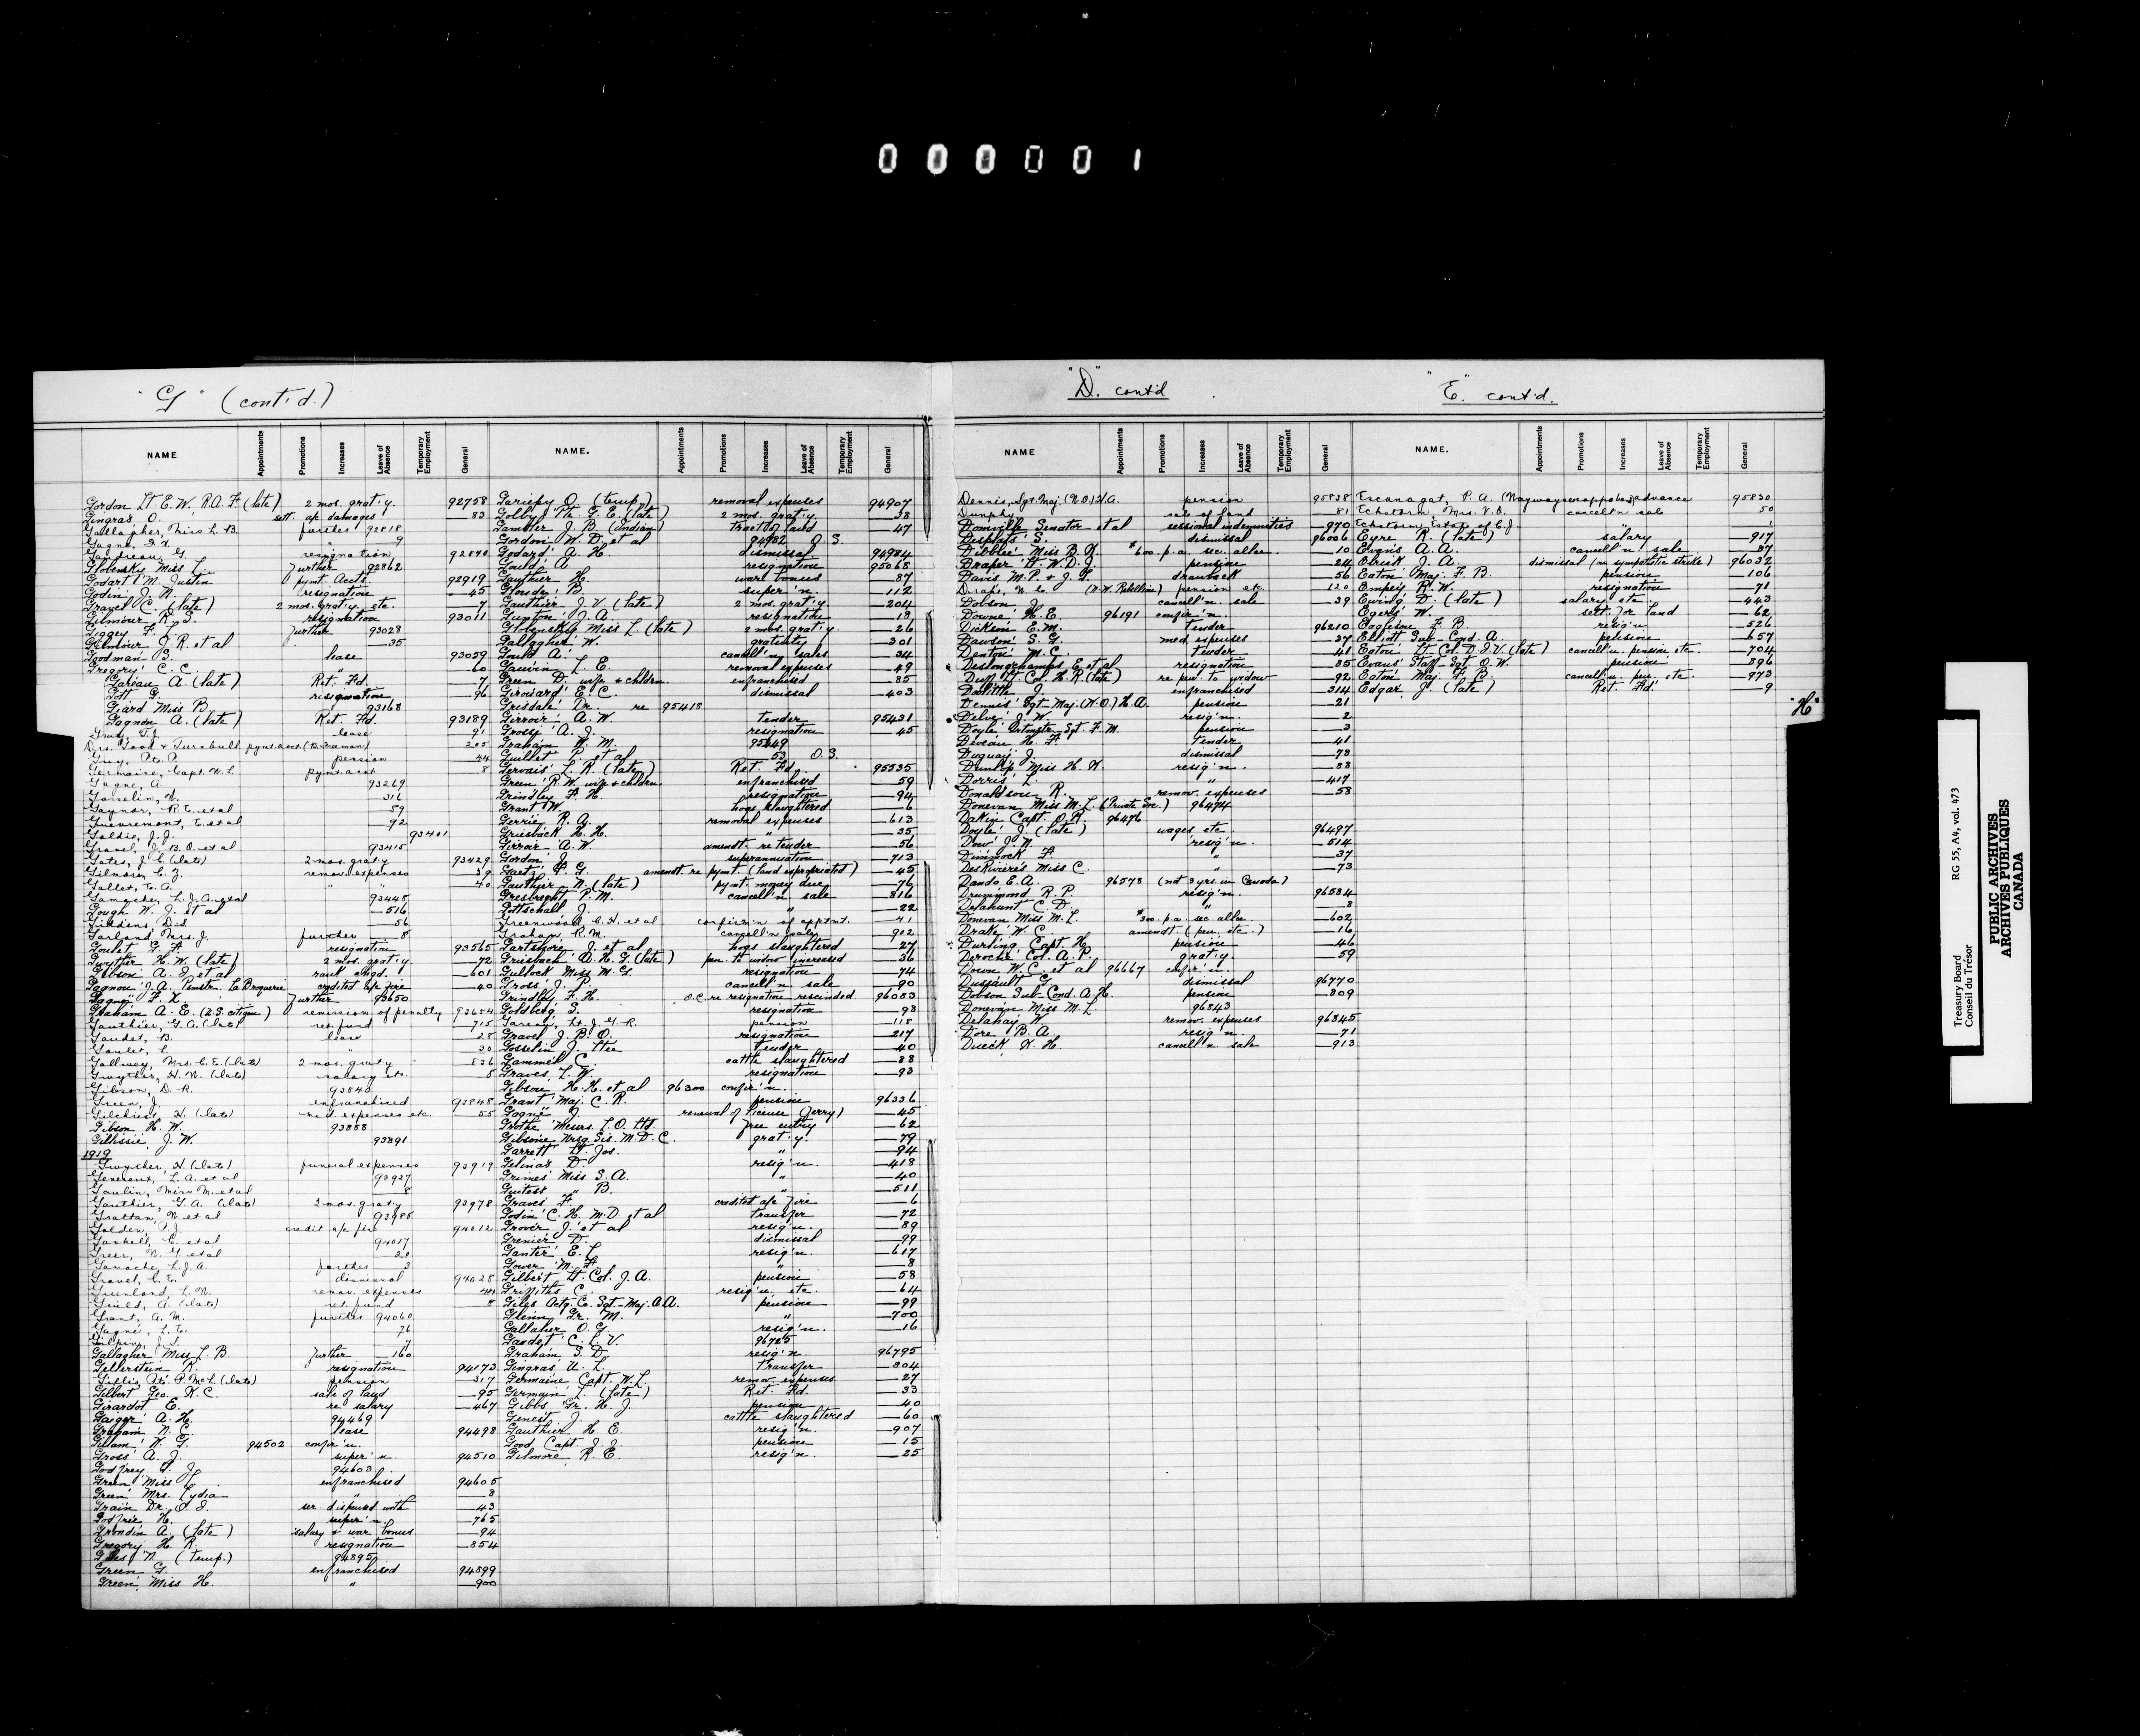 000001
"G" (cont'd.)
NAME Appointments Promotions Increases Leave of Absence Temporary Employment General
Gordon Lt E. W. R.A.F. (late) 2 mos. grat'y. 92758
Gingras O. sett. a/c damages 83
Gallagher, Miss L. B. further 92818
9
Gaudreau G. resignation 92840
Globensky Miss L. Further 92862
Godart M. Justin pymt. accts. 92919
Godin J. N. resignation 45
Gravel C. (late) 2 mos. grat'y. etc. 7
Gilmour R. S. resignation 93011
Giggey F. J. Further 93028
Gilmour J. R. et al 35
Goodman S. lease 93059
Gregory C. C. " 60
Gareau A. (late) Ret. Fd. 7
Gott G. resignation 96
Giard Miss B. 93168
Gagnon A. (late) Ret. Fd. 93189
Gray, T. J. lease 91
Drs. Good & Turnbull pymt. acct. 205
Guy, pension 44
Germaine, Capt. W. L. pymt. acct. 8
Gagne, A. 93269
Gosselin, N. 316
Gaynor, R. E. et al 59
Guevremont, E. et al 92
Goldie, J. J. 93401
Gravel, J. B. O. et al 93415
Gates, J. C. (late) 2 mos. grat'y 93429
Gilmore, C. Z. remov. expenses 39
Gallet, E. A. " " 40
Gamache, L. J. A. et al 93445
Gough W. J. et al 516
Giddens, D. d 56
Garland Mrs. J. further 8
Goulet G. A. resignation 93565
Gwyther H. W. (late) 2 mos. grat'y. 72
Gibson A. J. et al rank chgd. 601
Gagnon J. A. Pmstr. La Broquerie credited a/c fire 40
Gagné F. X. Further 93650
Graham A. E. (U.S. citizen) remission of penalty 93654
Gauthier, G. A. (late) ret. fund 715
Gaudet, B. lease 28
Goulet, L. " 30
Gallwey, Mrs. C. E. (late) 2 mos. grat'y 836
Gwyther, H. W. (late) salary etc. 8
Gibson, D. R. 93840
Green, J. enfranchised 93848
Gilchrist, H. (late) red. expenses etc. 55
Gibson H. W. 93858
Gillissie J. W. 93891
1919
Gwyther, H. (late) funeral expenses 93919
Genereux, L. A. et al 93927
Gaulin, Miss M. et al 8
Gauthier, G. A. (late) 2 mos. grat'y 93978
Grattan, N. et al 93985
Golden, A. J. credit a/c fire 94012
Gaskell, C. et al 94017
Greer, N. G. et al 20
Gamache, L. J. A. further 3
Gravel, C. E. dismissal 94028
Greenland, L. N. remov. expenses 44
Guild, A. (late) ret. fund "
Grant, A. M. further 94060
Gagné, L. E. 76
Gilpin, J. S. 7
Gallagher Miss L. B. Further 160
Gellerstein R. resignation 94173
Gillis P. McL. (late) pension 317
Gilbert Geo. K. C. sale of land 95
Girardot E. re salary 467
Gaiger A. H. 94469
Graham N. C. lease 94498
Gilliam N. G. 94502 confir'n.
Gross A. J. super'n. 94510
Godfrey J. J. 94603
Green Miss enfranchised 94605
Green Mrs. Lydia " 8
Grain Dr. O. J. ser. dispensed with 43
Godfrée H. super'n. 765
Grondin A. (late) salary & war bonus 94
Gregory H. R. resignation 854
Giles N. (temp.) 94895
Green G. enfranchised 94899
Green, Miss H. " 900
NAME. Appointments Promotions Increases Leave of Absence Temporary Employment General
Gariepy O. (temp.) removal expenses 94907
Golby Pte. G. E. (late) 2 mos. grat'y. 38
Gambler J. B. (Indian) tract of land 47
Gordon W. D. et al 94982 O. S.
Godard A. H. dismissal 94984
Gould A. resignation 95068
Gauthier H. ware bonus 87
Glouder B. super'n. 112
Gauthier J. V. (late) 2 mos. grat'y. 204
Gunton J. A. resignation 18
Globensky Miss L. (late) 2 mos. grat'y. 26
Gallagher W. gratuity 301
Gould A. cancell'n sales 34
Gauvin L. E. removal expenses 49
Green D. wife & children enfranchised 85
Girouard E. C. dismissal 403
Grisdale Dr. re 95418
Girroir A. W. tender 95431
Grossy A. J. resignation 45
Graham W. M. 95549
Guillet P. et al 53 O S.
Gervais L. R. (late) Ret. Fd. 95535
Green R. W. wife & children enfranchised 59
Grindley F. H. resignation 94
Grant W. hogs slaughtered 6
Gerrie R. A. removal expenses 613
Griesback H. H. " 35
Girroir A. W. amendt. re tender 56
Gordon J. superannuation 713
Gaetz F. G. amendt. re pymt. (land expropriated) 45
Gauthier N. (late) pymt. money due 76
Gresbrecht P. M. cancell'n sale 816
Gottschall J. " 22
Greenwood C. H. et al confirm'n of apptmt. 41
Graham, R. M. cancell'n sales 912
Gartshore J. et al hogs slaughtered 27
Griesbach A. H. G. (late) pen. to widow increased 36
Gullock Miss M. G. resignation 74
Gross J. P. cancell'n sale 90
Grindley F. H. O.C. re resignation rescinded 96053
Goldberg S. resignation 98
Gareay, Lt. J. G. R. pension 118
Gravel J. B. O. resignation 217
Gosselin J. Ltee tender 40
Gammel C. cattle slaughtered 88
Graves L. W. resignation 93
Gibson H. H. et al 96300 confir'n.
Grant Maj. C. R. pension 96336
Gagné J. renewal of license (ferry) 45
Grothe Messrs. L. O. Ltd. free entry 62
Gibsone Nrsg. Sis. M. D. C. grat'y. 79
Garrett Lt. Jos. " 94
Gelinas D. resig'n. 418
Grimes Miss S. A. " 40
Guitest " B. " 511
Graves F. credited a/c fire 6
Godin C. H. M.D. et al transfer 72
Grover J. et al resig'n. 89
Grenier D. dismissal 99
Ganter E. L. resig'n. 617
Gower M. A. " 8
Gilbert Lt. Col. J. A. pension 58
Griffiths C. resig'n. etc. 64
Giles Actg. C. Sgt.-Maj. A A. pension 99
Glenn Gr. M. " 700
Gallaher O. G. resig'n. 16
Gaudet C. L. V. 96725
Graham S. D. resig'n. 96795
Gingras U. L. transfer 804
Germaine Capt. W. L. remov. expenses 27
Germain L. (late) Ret. Fd. 33
Gibbs Gr. H. J. pension 40
Genest J. cattle slaughtered 60
Gauthier H. E. resig'n. 907
Good Capt. J. J. pension 15
Gilmore R. E. resig'n. 25
"D". cont'd
NAME Appointments Promotions Increases Leave of Absence Temporary Employment General
Dennis, Sgt. Maj. (W.O.) H. A. pension 95838
Dunphy sale of land 81
Domville Senator et al sessional indemnities 970
Desplats S. dismissal 96006
Dibblee Miss B. X. $600. p.a. sec. allce. 10
Draper Lt. W. D. J. pension 24
Davis M. P. & J. T. drawback 56
(N. W. Rebellion) pension etc. 120
Dobson cancell'n. sale 39
Downe H. E. 96191 confir'n.
Dickson E. M. tender 96210
Dawson S. G. med expenses 37
Denton M. C. tender 41
Deslongchamps, E. et al resignation 85
Duff Lt. Col. H. R. (late) re pen. to widow 92
Doolittle J. enfranchised 314
Dennis Sgt-Maj. (W.O.) H. A. pension 21
Delve J. W. resig'n. 2
Doyle Qrtmstr. Sgt. F. M. pension 3
Deveau H. A. tender 41
Duguay J. dismissal 78
Dunlop Miss H. X. resig'n. 88
Dorris L. " 417
Donaldson R. remov. expenses 58
Donevan Miss M. L. (Private Sec.) 96474
Dakin Capt. O. R. 96476
Doyle J. (late) wages etc. 96497
Dow J. N. resig'n. 514
Dimmock F. " 37
DesRivières Miss C. " 73
Dando E. A. 96578 (not 3 yrs. in Canada)
Drummond R. P. resig'n. 96584
Delahunt C. D. " 8
Donevan Miss M. L. $300. p.a. sec. allce. 602
Drake W. C. amendt. (pen. etc.) 16
Durling Capt. H. pension 46
Deroche Col. A. P. grat'y. 59
Down W. C. et al 96667 confir'n.
Dussault G. dismissal 96770
Dobson Sub-Cond. A. H. pension 809
Donevan Miss M. L. 96843
Delahay W. remov. expenses 96845
Dore B. A. resig'n. 71
Dueck, X. H. cancell'n sale 913
"E." cont'd.
NAME. Appointments Promotions Increases Leave of Absence Temporary Employment General
Escanagat, P. A. advance 95830
Eckstorm, Mrs. V. O. cancell'n sale 50
Eckstorm, Estate of C. J. " 1
Eyre R. (late) salary 917
Evans A. A. cancell'n sale 87
Elrick J. A. dismissal (in sympathetic strike) 96032
Eaton Maj. F. B. pension 106
Empey R. W. resignation 71
Ewing D. (late) salary etc 443
Egers W. sett. for land 62
Eagleson F. B. resig'n. 526
Elliott Sub-Cond. A. pension 657
Eaton Lt-Col. D. I. V. (late) cancell'n. pension etc. 704
Evans Staff-Sgt. O. W. pension 896
Eaton Maj. F. B. cancell'n pen. etc. 973
Edgar, J. (late) Ret. Fd. 9
"H"
Treasury Board RG 55, A4, vol. 473
Conseil du Trésor
PUBLIC ARCHIVES
ARCHIVES PUBLIQUES
CANADA